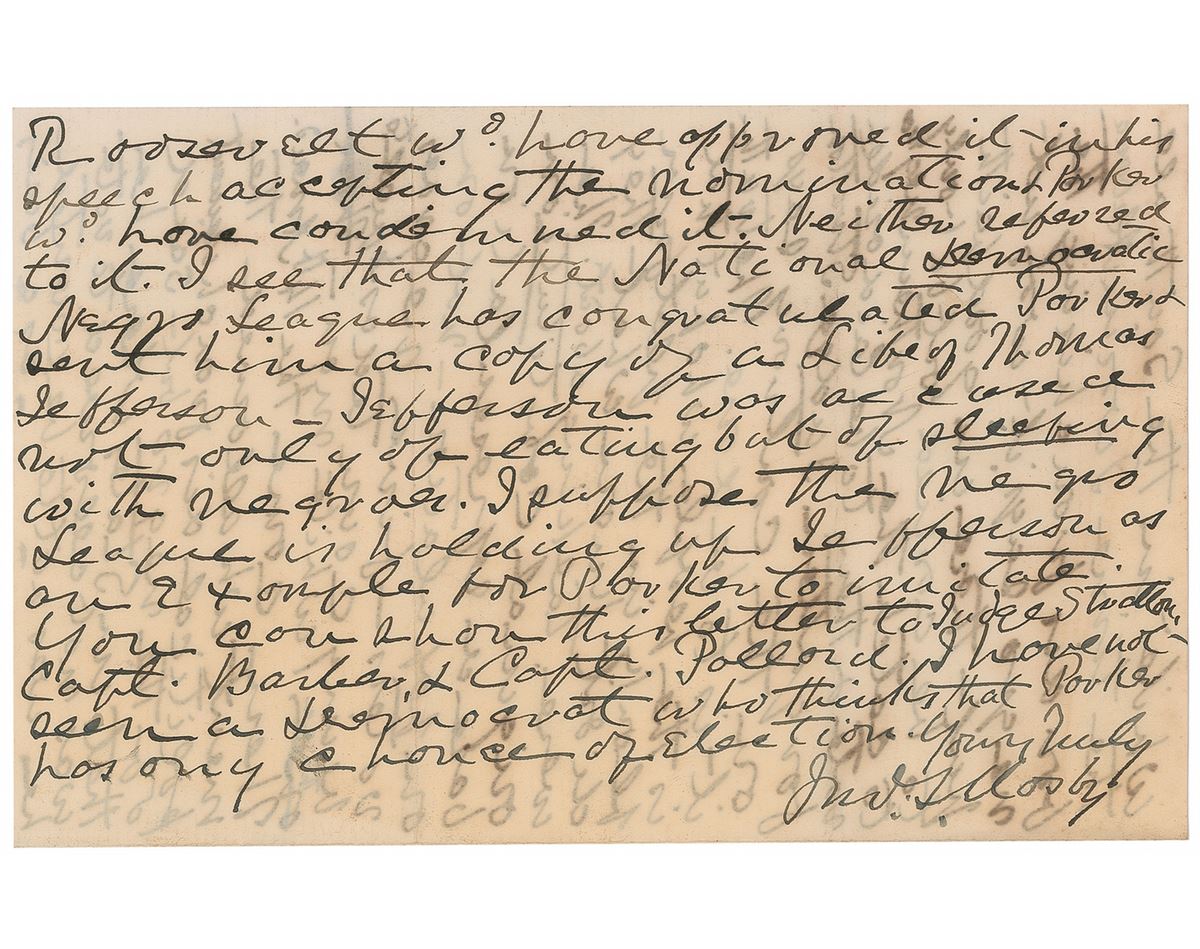 Roosevelt wᵒ. have approved it in his
speech accepting the nomination & Parker
wᵒ. have condemned it. Neither referred
to it. I see that the National Democratic
Negro League has congratulated Parker &
sent him a copy of a Life of Thomas
Jefferson – Jefferson was accused
not only of eating but of sleeping
with negroes. I suppose the negro
League is holding up Jefferson as
an Example for Parker to imitate.
You can show this letter to Judge Stratton,
Capt. Barber, & Capt. Pollard. I have not
seen a Democrat who thinks that Parker
has any chance of Election. Yours Truly
Jno. S. Mosby